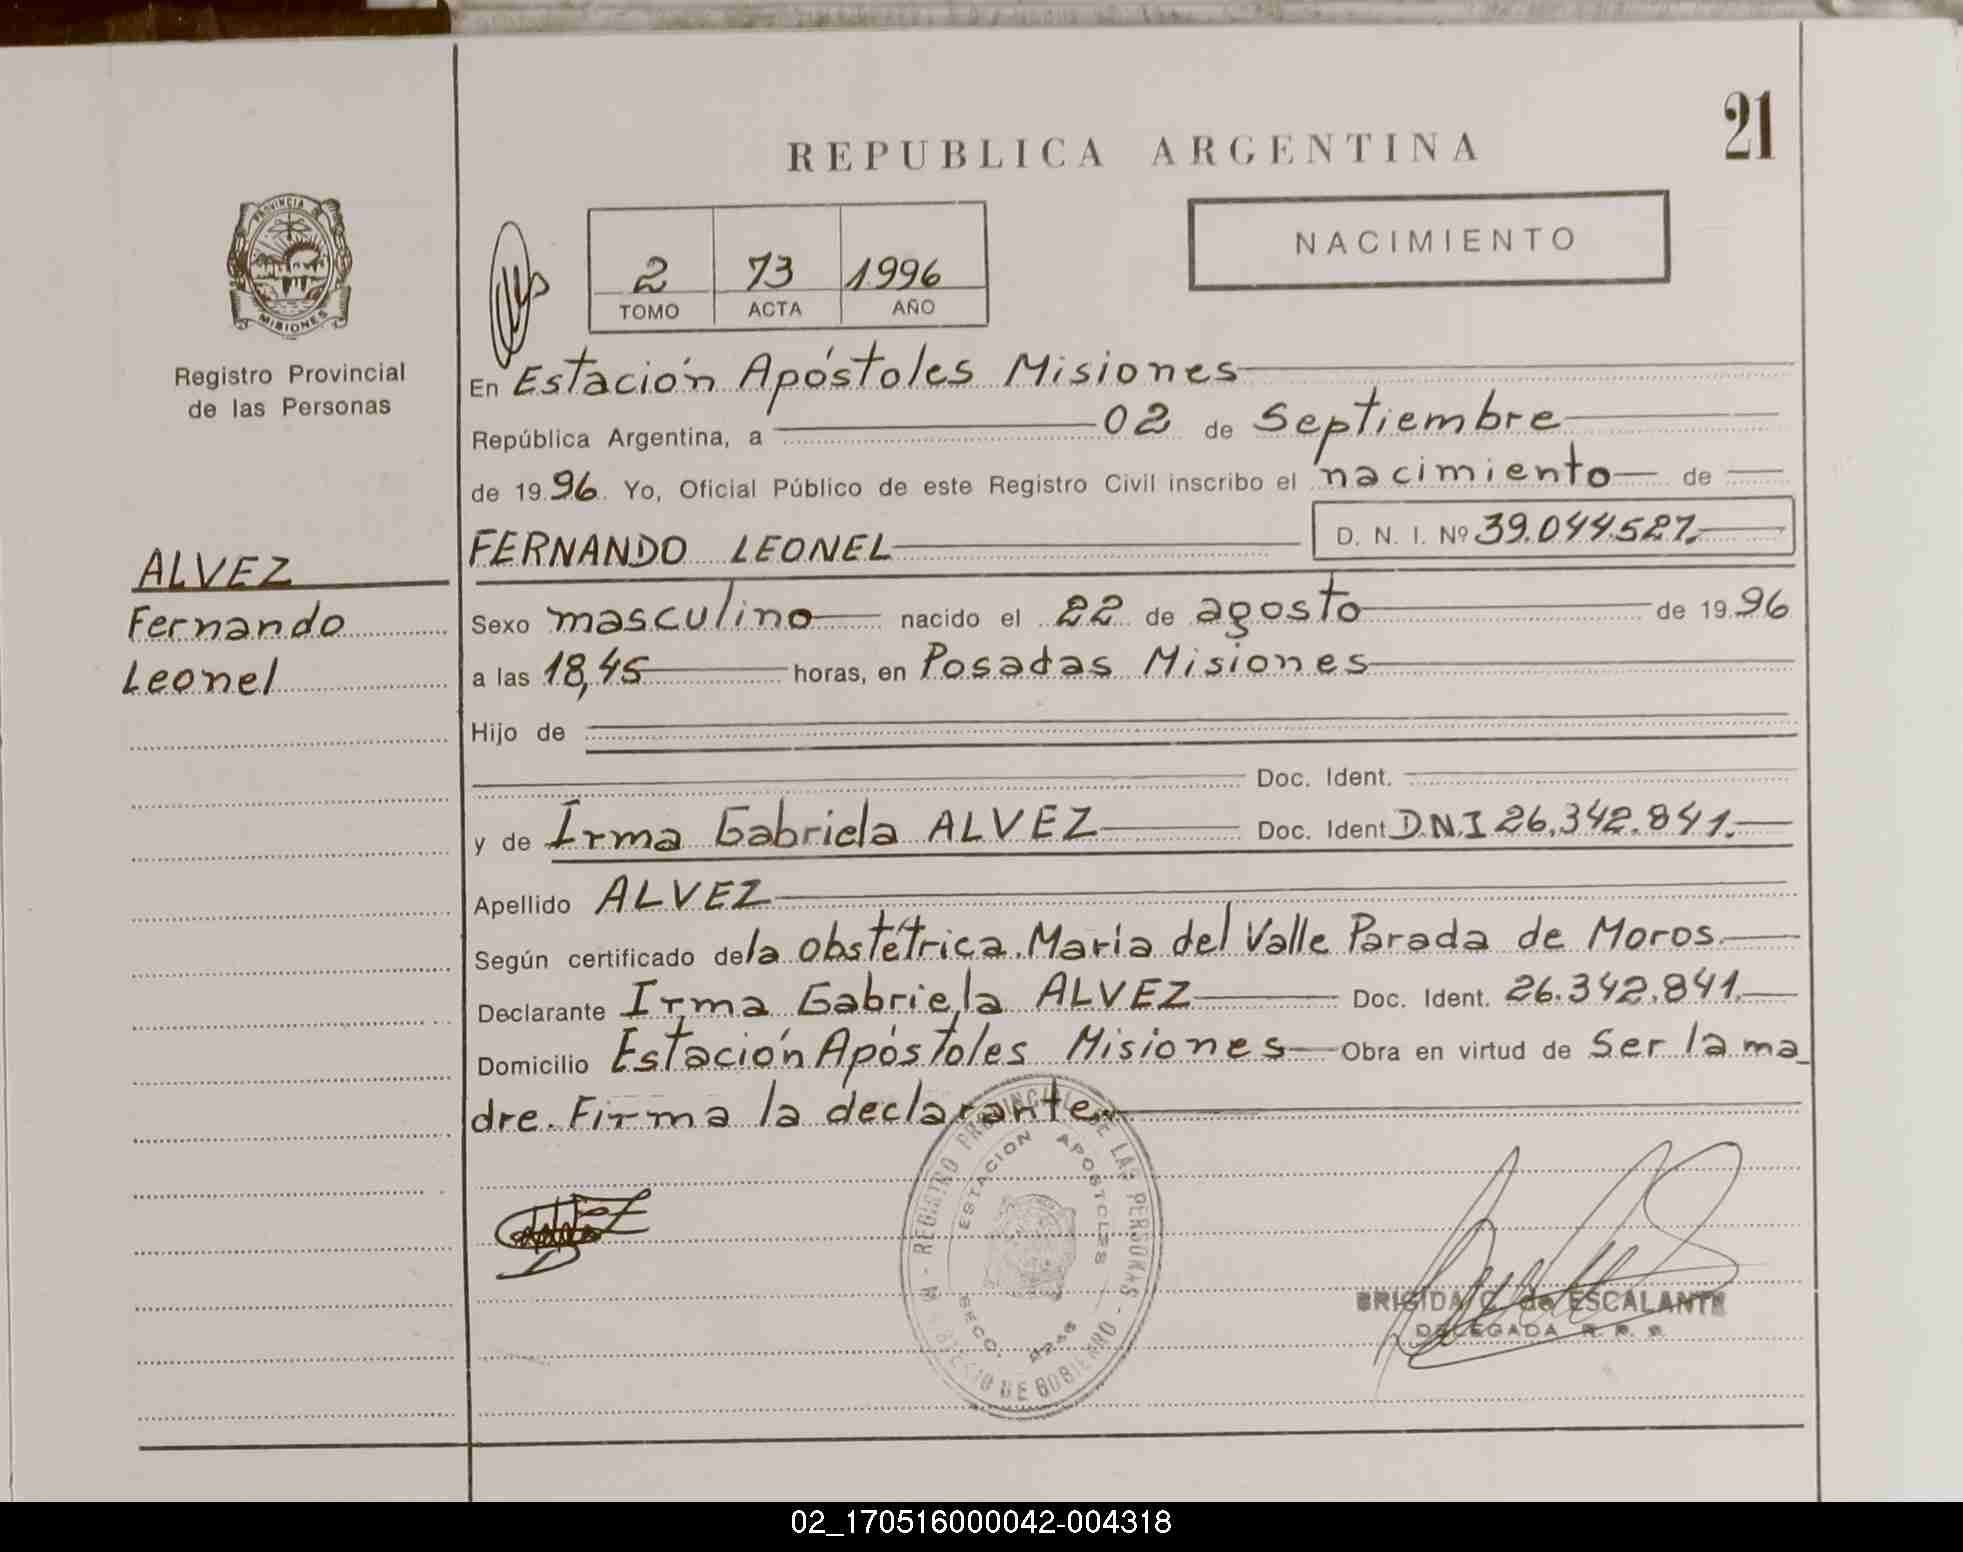 21
REPUBLICA ARGENTINA
NACIMIENTO
PROVINCIA
MISIONES
Registro Provincial
de las Personas
2 73 1996
TOMO ACTA AÑO
En Estación Apóstoles Misiones
República Argentina, a 02 de Septiembre
de 1996. Yo, Oficial Público de este Registro Civil inscribo el nacimiento de
FERNANDO LEONEL D. N. I. Nº 39.044.527.
ALVEZ
Fernando
Leonel
Sexo masculino nacido el 22 de agosto de 1996
a las 18,45 horas, en Posadas Misiones
Hijo de
Doc. Ident.
y de Irma Gabriela ALVEZ Doc. Ident D.N.I 26.342.841.
Apellido ALVEZ
Según certificado de la obstétrica. María del Valle Parada de Moros.
Declarante Irma Gabriela ALVEZ Doc. Ident. 26.342.841.
Domicilio Estación Apóstoles Misiones Obra en virtud de Ser la ma_
dre. Firma la declarante.
REGISTRO PROVINCIAL DE LAS PERSONAS
ESTACION APOSTOLES
SECC.
DE GOBIERNO
BRIGIDA C. de ESCALANTE
DELEGADA R. P. P.
02_170516000042-004318